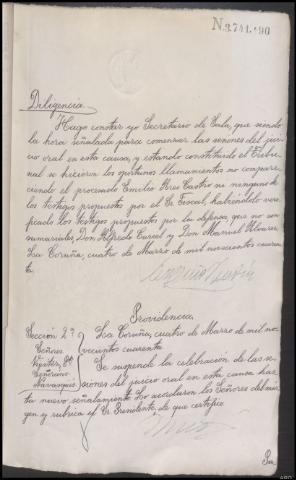 N.3.741.190
Diligencia.
Hago constar yo Secretario de Sala, que siendo
la hora señalada para comenzar las sesiones del jui-
cio oral en esta causa, y estando constituido el Tribu-
nal se hicieron los oportunos llamamientos no compare-
ciendo el procesado Emilio Pres Castro ni ninguno de
los testigos propuestos por el Sr. Fiscal, habiéndolo veri-
ficado los testigos propuestos por la defensa que no son
sumariales, Don Alfredo Curiel y Don Manuel Alvarez.
La Coruña, cuatro de Marzo de mil novecientos cuaren-
ta.
Providencia.
Sección 2ª
Señores
Navasqüés
La Coruña, cuatro de Marzo de mil no-
vecientos cuarenta
Se suspende la celebración de las se-
siones del juicio oral en esta causa has-
ta nuevo señalamiento. Lo acordaron los Señores del már-
gen y rubrica el Sr. Presidente, de que certifico